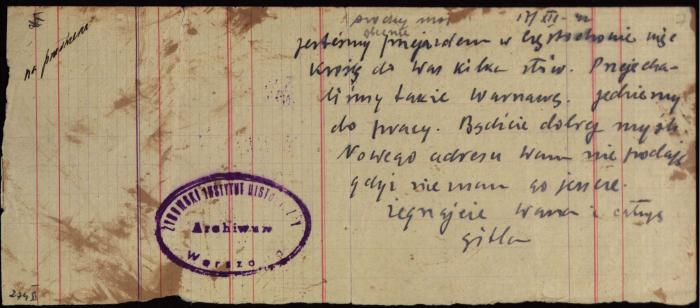 na
17 III
jesteśmy przejazdem w Częstochowie więc
kreślę do Was kilka słów. Przejecha-
liśmy także Warszawę. jedziemy
do pracy. Bądźcie dobrej myśli
Nowego adresu Wam nie podaję
gdyż nie mam go jeszcze.
żegnajcie Wasza i całuję
Gitla
ŻYDOWSKI INSTYTUT HISTORYCZNY
Archiwum
Warszawa